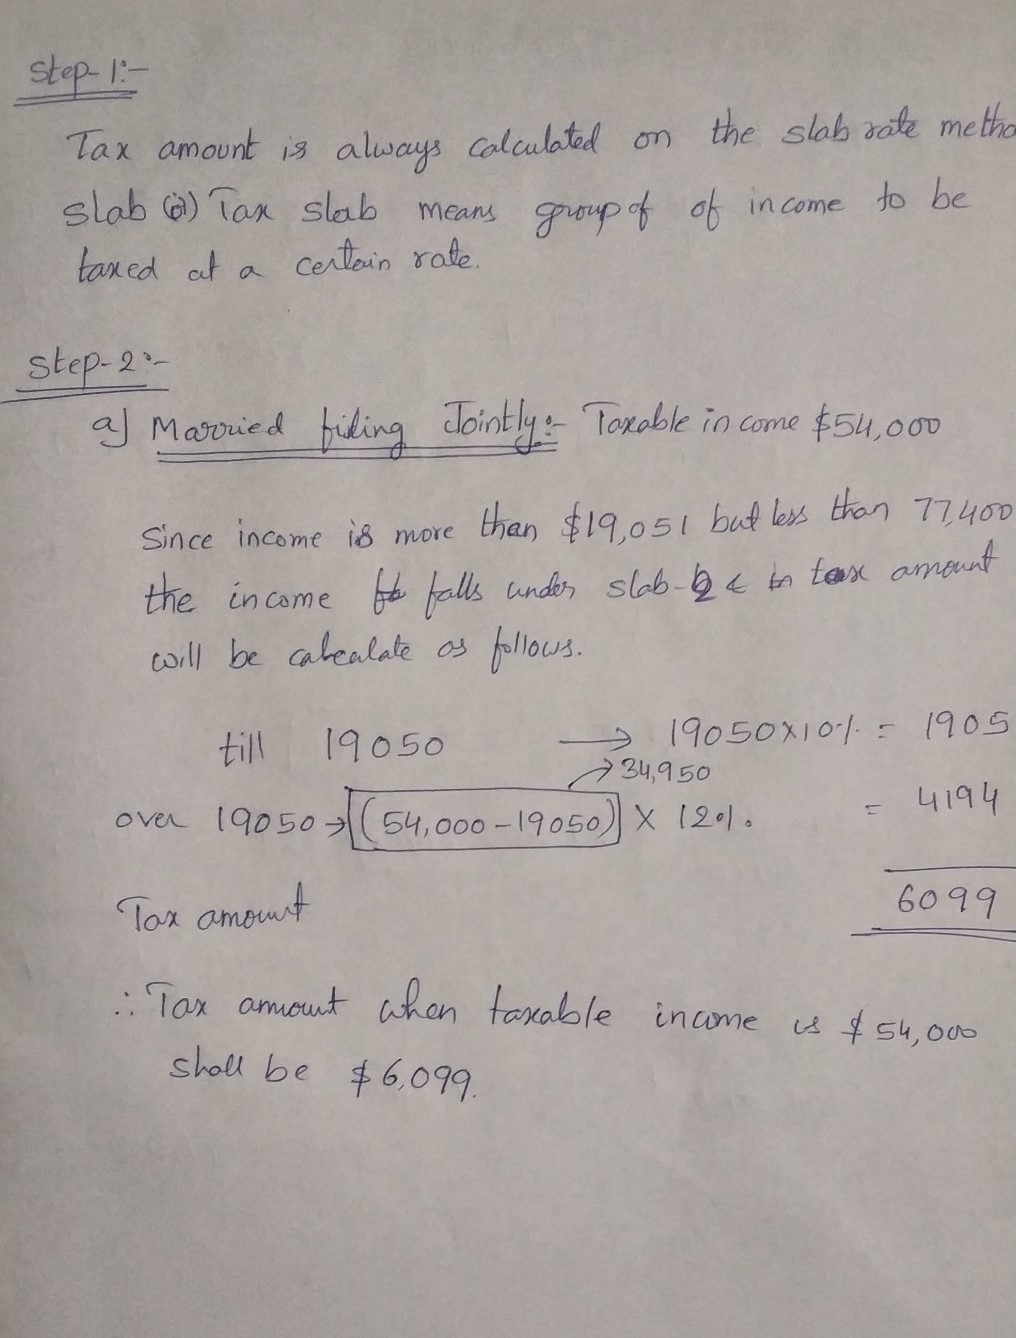 Step-1:-
Tax amount is always calculated on the slab rate metho
slab (ii) Tax slab means group of of income to be
taxed at a certain rate.
Step-2:-
a) Married fiding Jointly:- Taxable in come $54,000
Since income is more than $19,051 but less than 77,400
the income falls under slab-2 & tax amount
will be calcalate as follows.
till 19050 → 19050x10% = 1905
→ 34,950
over 19050 → (54,000-19050) X 12%. = 4194
Tax amount 6099
∴ Tax amount when taxable income is $ 54,000
shall be $6,099.